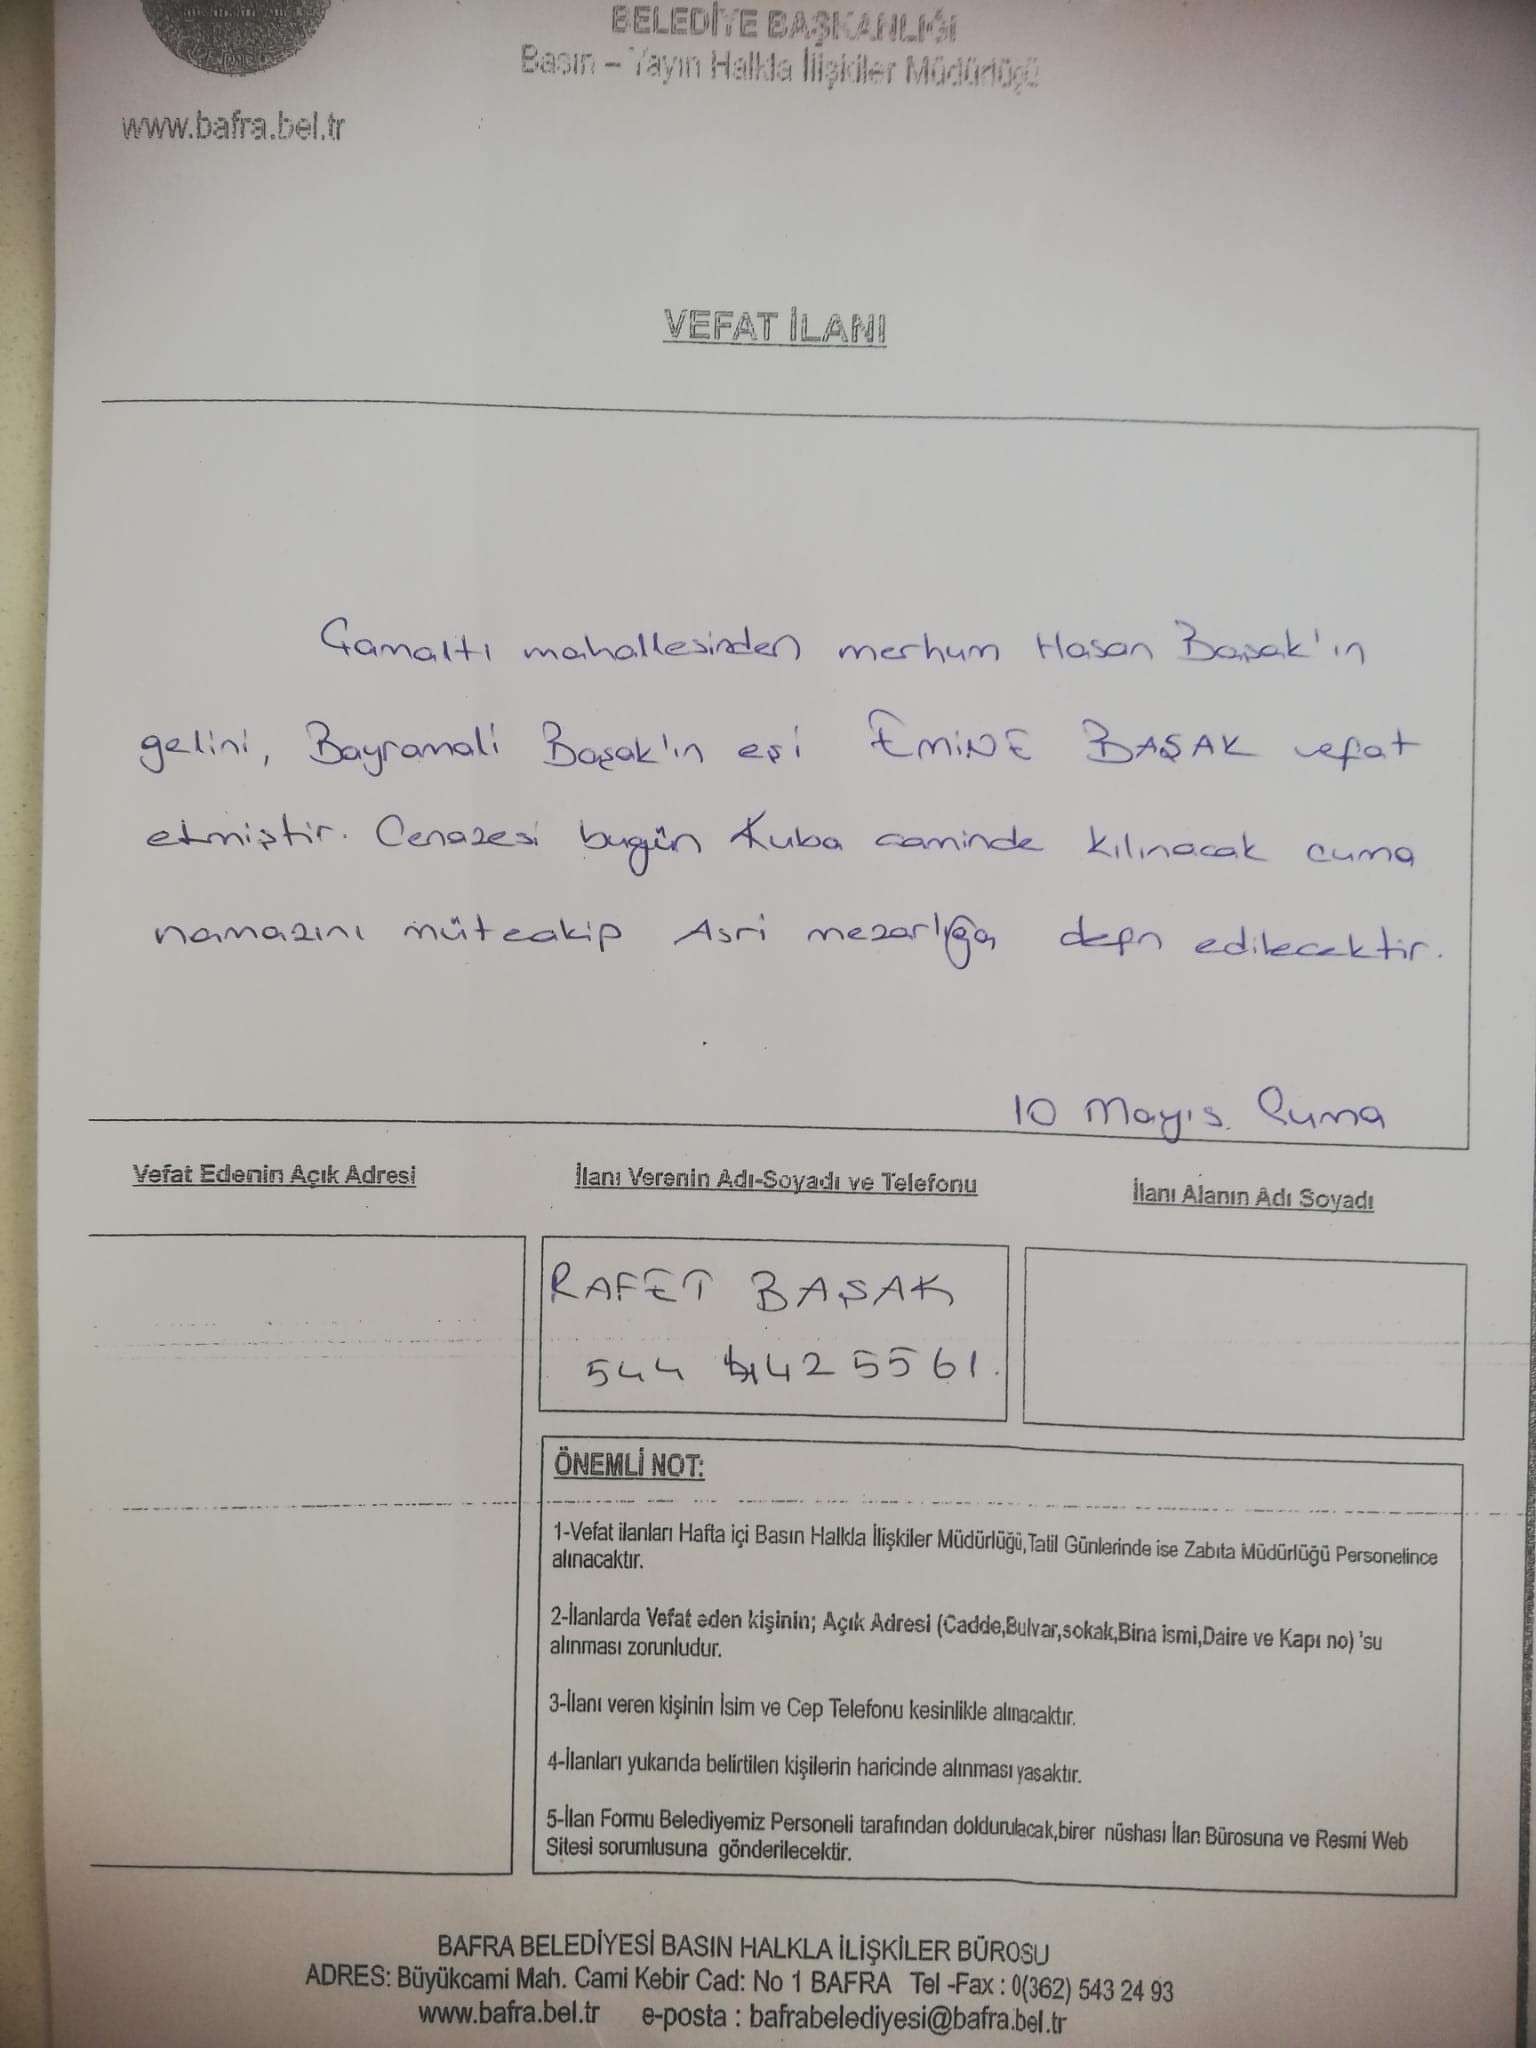 BELEDİYE BAŞKANLIĞI
Basın – Yayın Halkla İlişkiler Müdürlüğü
www.bafra.bel.tr
VEFAT İLANI
Gamaltı mahallesinden merhum Hasan Başak'ın
gelini, Bayramali Başak'ın eşi EMİNE BAŞAK vefat
etmiştir. Cenazesi bugün Kuba caminde kılınacak cuma
namazını müteakip Asri mezarlığa defn edilecektir.
10 Mayıs Cuma
Vefat Edenin Açık Adresi
İlanı Verenin Adı-Soyadı ve Telefonu
İlanı Alanın Adı Soyadı
RAFET BAŞAK
544 425561.
ÖNEMLİ NOT:
1-Vefat ilanları Hafta içi Basın Halkla İlişkiler Müdürlüğü,Tatil Günlerinde ise Zabıta Müdürlüğü Personelince
alınacaktır.
2-İlanlarda Vefat eden kişinin; Açık Adresi (Cadde,Bulvar,sokak,Bina ismi,Daire ve Kapı no) 'su
alınması zorunludur.
3-İlanı veren kişinin İsim ve Cep Telefonu kesinlikle alınacaktır.
4-İlanları yukarıda belirtilen kişilerin haricinde alınması yasaktır.
5-İlan Formu Belediyemiz Personeli tarafından doldurulacak,birer nüshası İlan Bürosuna ve Resmi Web
Sitesi sorumlusuna gönderilecektir.
BAFRA BELEDİYESİ BASIN HALKLA İLİŞKİLER BÜROSU
ADRES: Büyükcami Mah. Cami Kebir Cad: No 1 BAFRA Tel -Fax : 0(362) 543 24 93
www.bafra.bel.tr e-posta : bafrabelediyesi@bafra.bel.tr